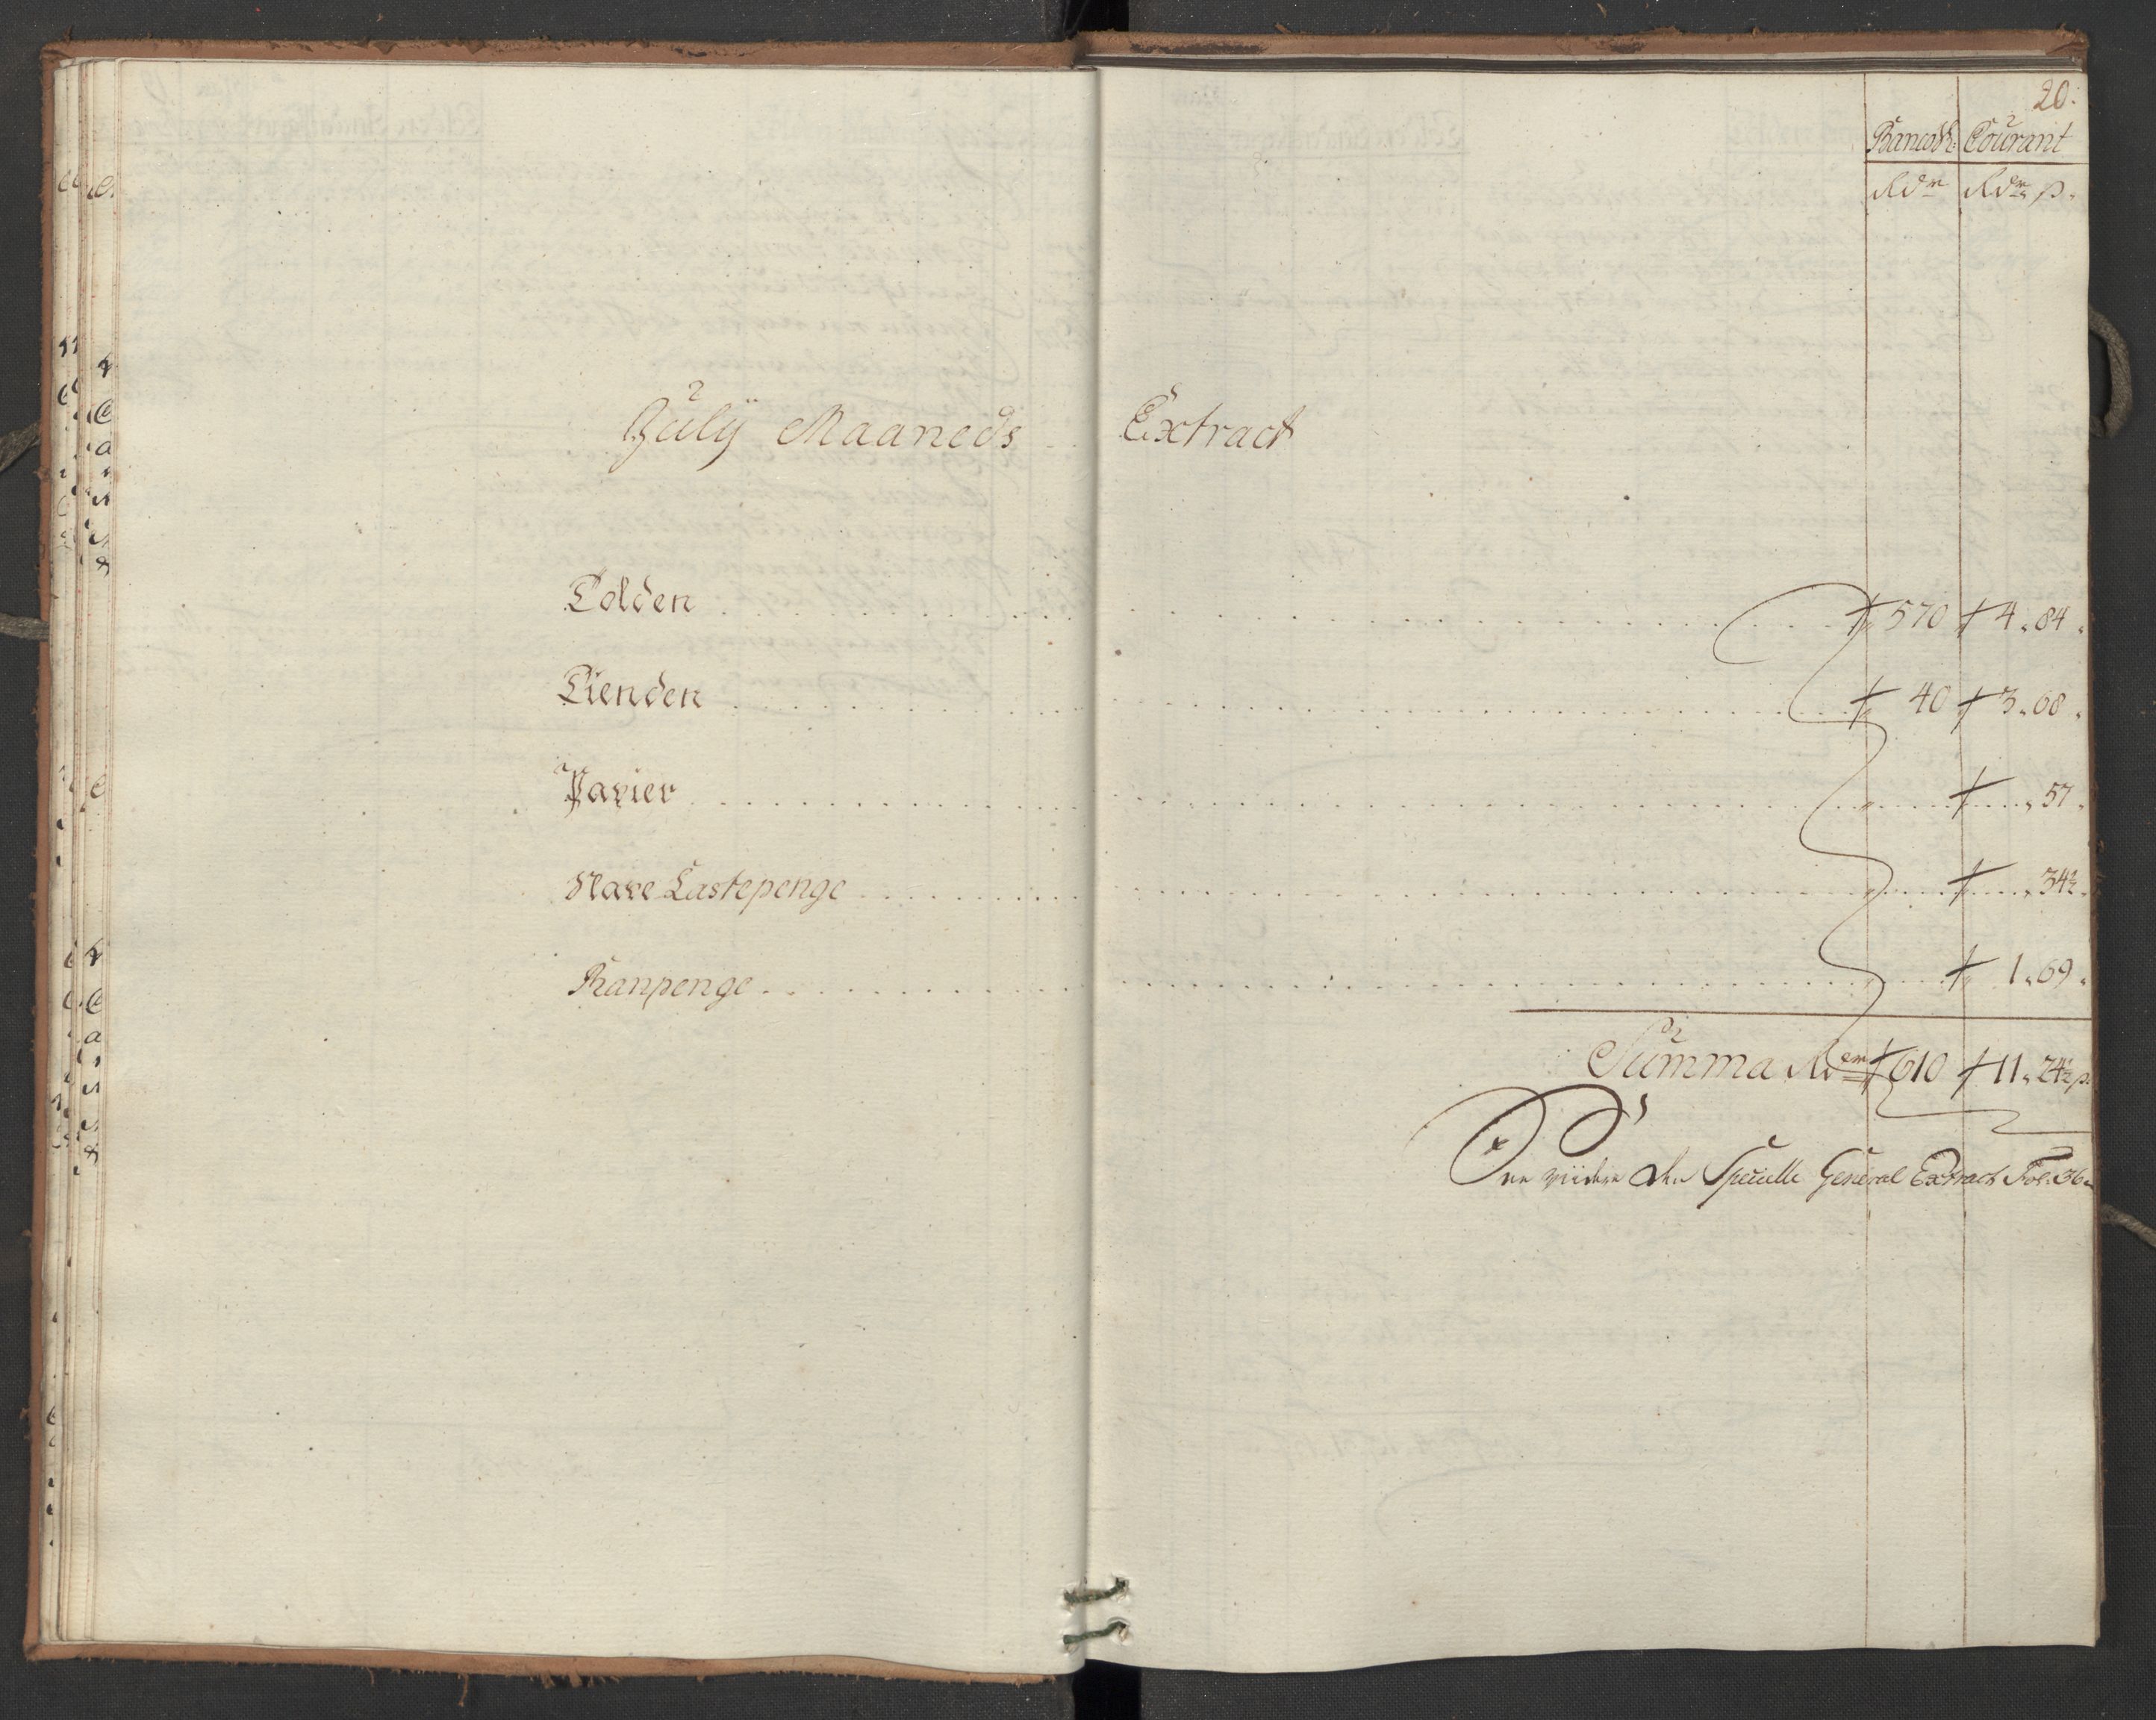 20.
Bancosdl: Courant
Rdr Rdr ß.
Julÿ Maaneds Extract
Tolden 570 4. 84.
Tienden 40 3. 68.
Papier 57.
Nave Lastepenge 34½.
Kanpenge 1. 69.
Summa Rder 610 11. 24½ ß
den Specielle General Extract Fol: 36